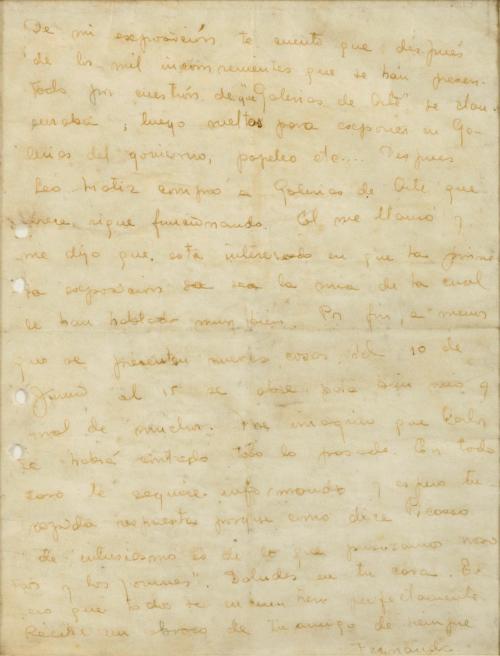 De mi exposición te cuento que después
de los mil inconvenientes que se han presen-
tado por cuestión de que "Galerias de Arte" se clau-
suraba, luego vueltas para exponer en Ga-
lerias del gobierno, papeleo etc.... Despues
Leo Matiz compró a Galerias de Arte que
sigue funcionando. El me llamó y
me dijo que está interesado en que la prime-
ra exposicion sea la mia de la cual
le han hablado muy bien. Por fin, a menos
que se presenten nuevas cosas del 10 de
Junio al 15 se abre
mal de muchos. me imagino que
te habrá contado todo lo pasado. En todo
caso te seguire informando y espero tu
rapida respuesta porque como dice Picasso
de entusiasmo es de lo que
y los jovenes". Saludes en tu casa. Es-
que todo se encuentren perfectamente.
Recibe un abrazo de tu amigo de siempre
Fernando